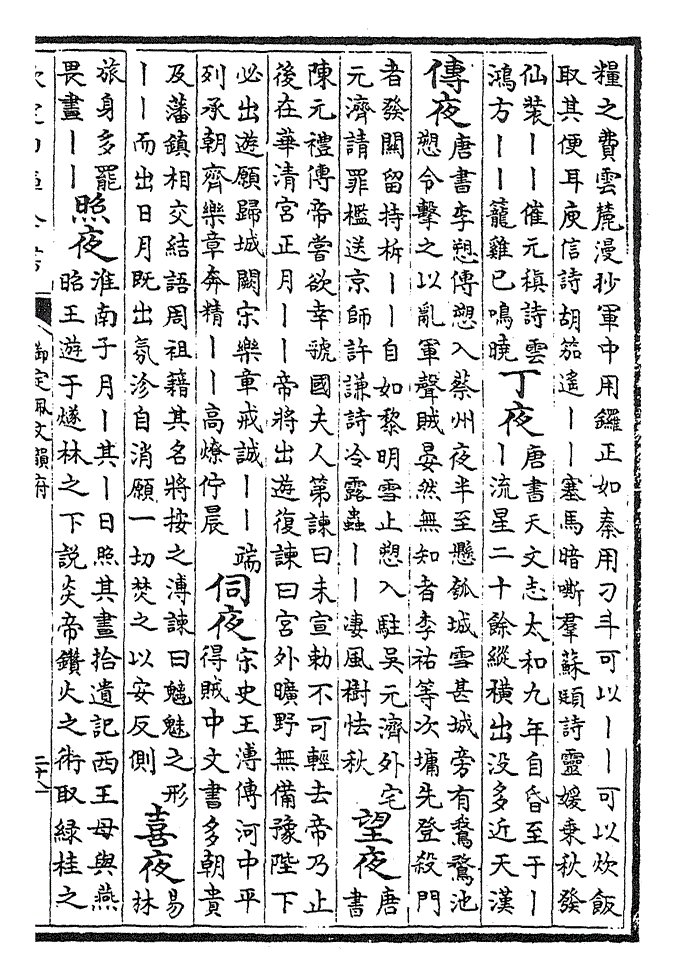 糧之費雲麓漫抄軍中用鑼正如秦用刁斗可以丨丨可以炊飯
取其便耳庾信詩胡笳遥丨丨塞馬暗嘶羣蘇頲詩靈媛乗秋發
仙装丨丨催元稹詩雲
鴻方丨丨籠雞已鳴曉
丁夜
唐書天文志太和九年自昏至于丨
丨流星二十餘縱横出没多近天漢
傳夜
唐書李愬傳愬入蔡州夜半至懸瓠城雪甚城旁有鵞鶩池
愬令擊之以亂軍聲賊晏然無知者李祐等次墉先登殺門
者發關留持柝丨丨自如黎明雪止愬入駐吳元濟外宅
元濟請罪檻送京師許謙詩冷露蟲丨丨凄風樹怯秋
望夜
唐
書
陳元禮傳帝嘗欲幸虢國夫人第諫曰未宣勅不可輕去帝乃止
後在華清宮正月丨丨帝將出遊復諫曰宮外曠野無備豫陛下
必出遊願歸城闕宋樂章戒誠丨丨端
列承朝齊樂章奔精丨丨高燎佇晨
伺夜
宋史王溥傳河中平
得賊中文書多朝貴
及藩鎮相交結語周祖籍其名將按之溥諫曰魑魅之形
丨丨而出日月既出氛沴自消願一切焚之以安反側
喜夜
易
林
旅身多罷
畏晝丨丨
照夜
淮南子月丨其丨日照其晝拾遺記西王母與燕
昭王遊于燧林之下説炎帝鑽火之術取緑桂之
御定佩文韻府